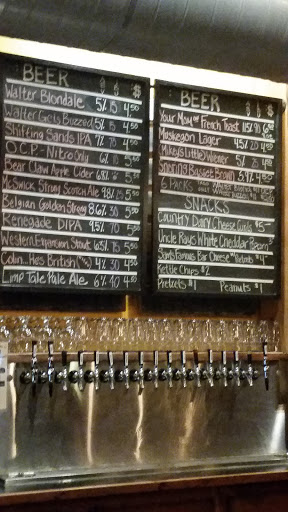 BEER $
Walter Blondale 5% 15 4.50
Walter Gets Buzzed 5% 15 4.50
Shifting Sands IPA 7% 70 4.50
O.C.P - Nitro Only 6% 5.50
Bear Claw Apple Cider 6.8% 5.50
McSwick Strong Scotch Ale 9.8% 25 5.50
Belgian Golden Strong 8.6% 30 5.50
Renegade DIPA 9.5% 70 5.50
Western Expansion Stout 6.5% 75 5.50
Colin... He's British 4% 30 4.50
Limp Tale Pale Ale 6% 40 4.50
BEER $
Your Mom on French Toast
Muskegon Lager 4.5% 20 4.50
Mikey's Little Weiner 5% 4.50
Basset Brown
6 PACKS
SNACKS
Country Dairy Cheese Curds $5
Uncle Ray's White Cheddar
Sam's Famous Bar Cheese $4
Kettle Chips $2
Pretzels $1 Peanuts $1